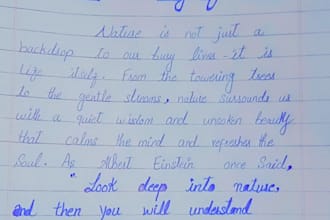 Nature is not just a
backdrop to our busy lives - it is
life itself. From the towering trees
to the gentle streams, nature surrounds us
with a quiet wisdom and unspoken beauty
that calms the mind and refreshes the
Soul. As Albert Einstein once Said,
"Look deep into nature,
and then you will understand